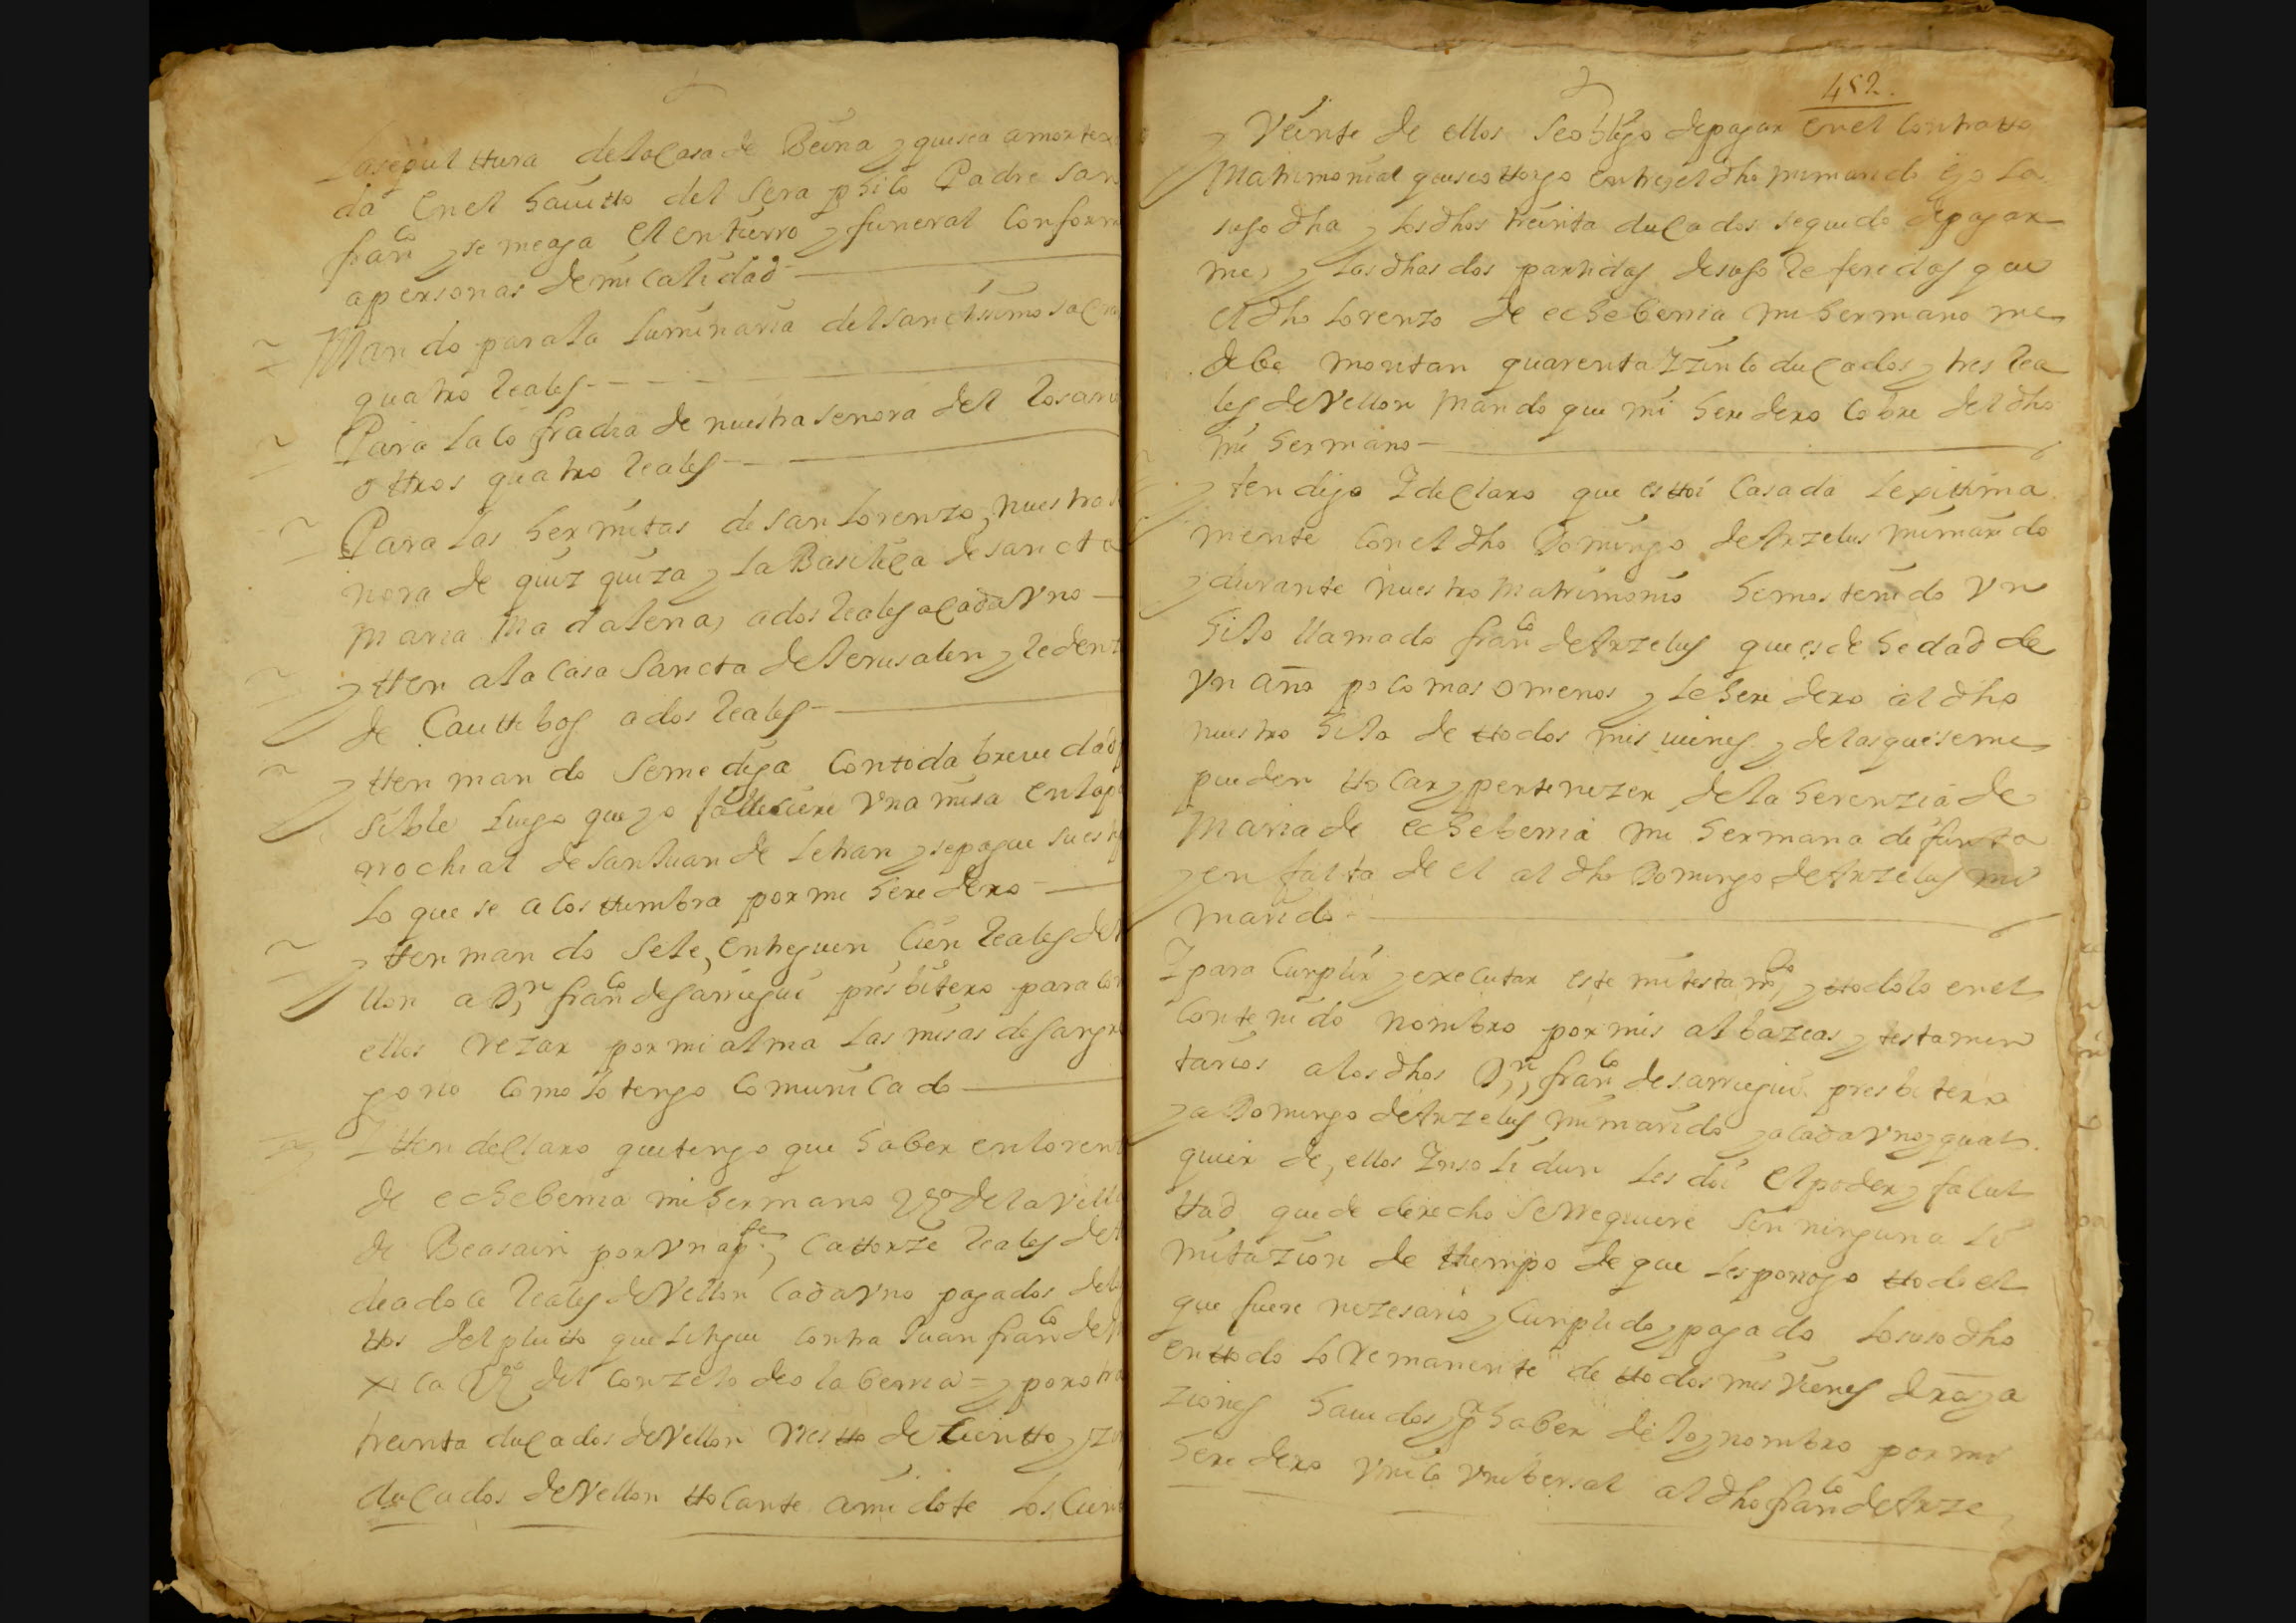 la sepulttura de la Casa de Beina y que sea amortexa
da en el hauitto del Sera phico Padre San
fran^co y se me aga el entierro y funeral conforme
a personas de mi calidad
Mando para la luminaria del sanctisimo sacra
quatro Reales
Para la cofradia de nuestra senora del Rosario
ottros quatro Reales
Para las hermitas de san lorenzo, nuestra se
nora de quizquiza y la Basilica de sancta
maria Madalena, a dos Reales a cada Vno
ytten a la casa Sancta de Jerusalen y redenz
de Cauttibos a dos Reales
ytten mando se me diga con toda breuedad
sible luego que yo falleciere Vna misa en la pa
rrochial de san Juan de Letran y se pague su est
lo que se acosttumbra por mi heredero
ytten mando se le, entreguen cien Reales de Ve
llon a D^n fran^co de Sarriegui presbitero para con
ellos rezar por mi alma las misas de san gre
gorio como lo tengo comunicado
Ytten declaro que tengo que haber en loren
de echeberria mi hermano v^o de la villa
de Beasain por Vna p^te cattorze Reales de
de a doce Reales de Vellon cada Vno pagados de
ttos del pleitto que litigue contra Juan fran^co de
ca v^o del conzejo de olaberria = y por otra
treinta ducados de Vellon resto de Cientto y zin
ducados de Vellon ttocante a mi dote los cien
452.
y Veinte de ellos se obligo de pagar en el Contratto
Matrimonial que se ottorgo entre el dho mi marido e yo la
suso dha y los dhos treinta ducados se quedo de pagar
me, y las dhas dos partidas de suso referidas que
el dho Lorenzo de echeberria mi hermano me
debe montan quarenta Y zinco ducados y tres Rea
les de Vellon Mando que mi heredero cobre del dho
mi hermano
ytten digo Y declaro que esttoi casada lexittima
mente con el dho Domingo de Arzelus mi marido
y durante nuestro matrimonio hemos tenido Vn
hijo llamado fran^co de Arzelus que es de hedad de
Vn año poco mas o menos y le heredero al dho
nuestro hijo de ttodos mis uienes y de las que se me
pueden ttocar y pertenezer de la herenzia de
Maria de echeberria mi hermana difunta
y en falta de el al dho Domingo de Arzelus mi
marido
Y para Cunplir y executar este mi testam^to, y ttodo lo en el
Contenido nombro por mis albazeas y testamen
tarios a los dhos D^n fran^co de sarriegui presbitero
y a Domingo de Arzelus mi marido y a cada vno y qual
quier de, ellos Ynsolidun les doi el poder y facul
ttad que de derecho se rrequiere sin ninguna li
mitazion de ttiempo de que les prorrogo ttodo el
que fuere nezesario y Cunplido y pagado lo suso dho
en ttodo lo remanente de ttodos mis Vienes dr^os y a
ziones hauidos y p^r haber dejo y nombro por mi
heredero vnico vnibersal al dho fran^co de Arze